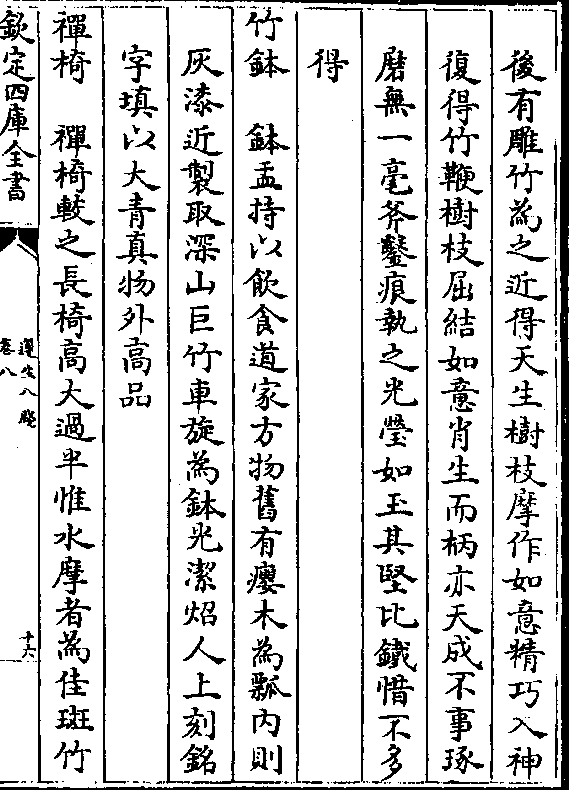 後有雕竹為之近得天生樹枝摩作如意精巧入神
復得竹鞭樹枝屈結如意肖生而柄亦天成不事琢
磨無一毫斧鑿痕執之光瑩如玉其堅比鐵惜不多
得
竹鉢　鉢盂持以飲食道家方物舊有癭木為瓢内則
灰漆近製取深山巨竹車旋為鉢光潔炤人上刻銘
字填以大青真物外高品
禪椅　禪椅較之長椅高大過半惟水摩者為佳斑竹
欽定四庫全書
遵生八牋
卷八
十六